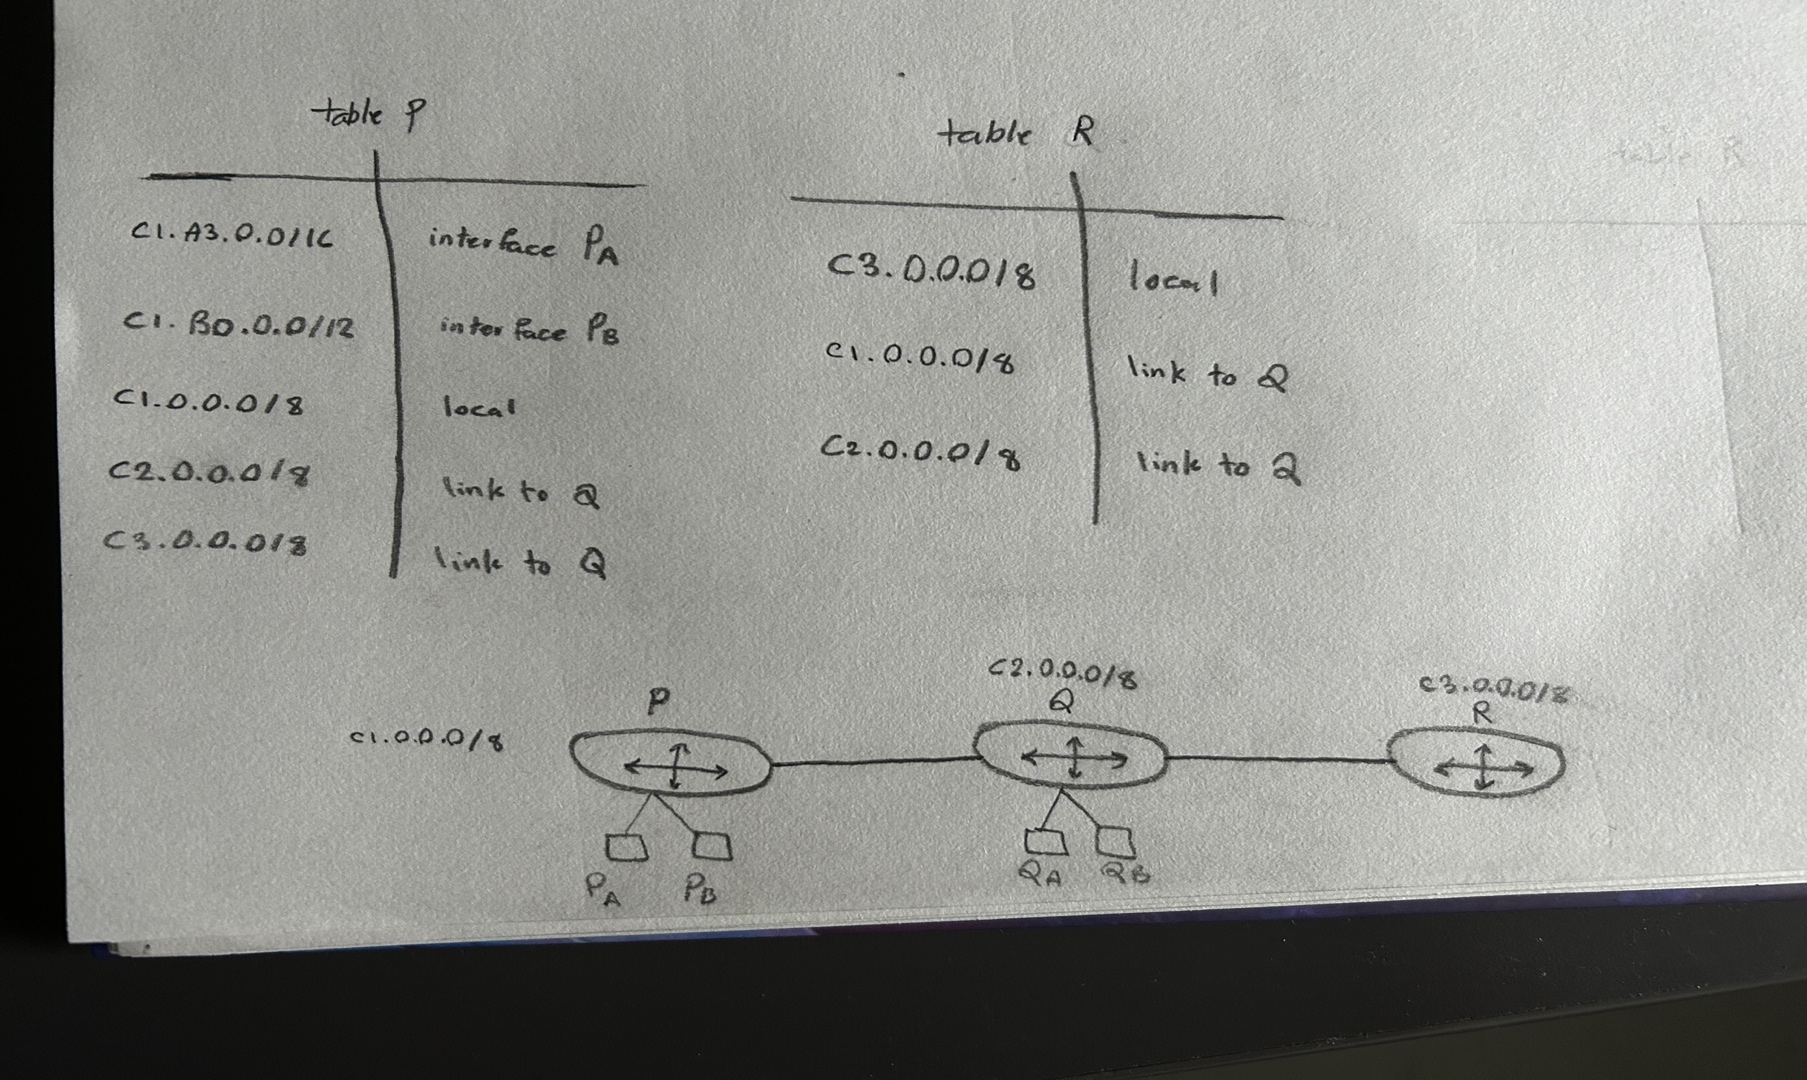 table P
C1.A3.0.0/16 interface PA
C1.B0.0.0/12 interface PB
C1.0.0.0/8 local
C2.0.0.0/8 link to Q
C3.0.0.0/8 link to Q
table R
C3.0.0.0/8 local
C1.0.0.0/8 link to Q
C2.0.0.0/8 link to Q
table R
C1.0.0.0/8
P
C2.0.0.0/8
Q
C3.0.0.0/8
R
PA PB
QA QB